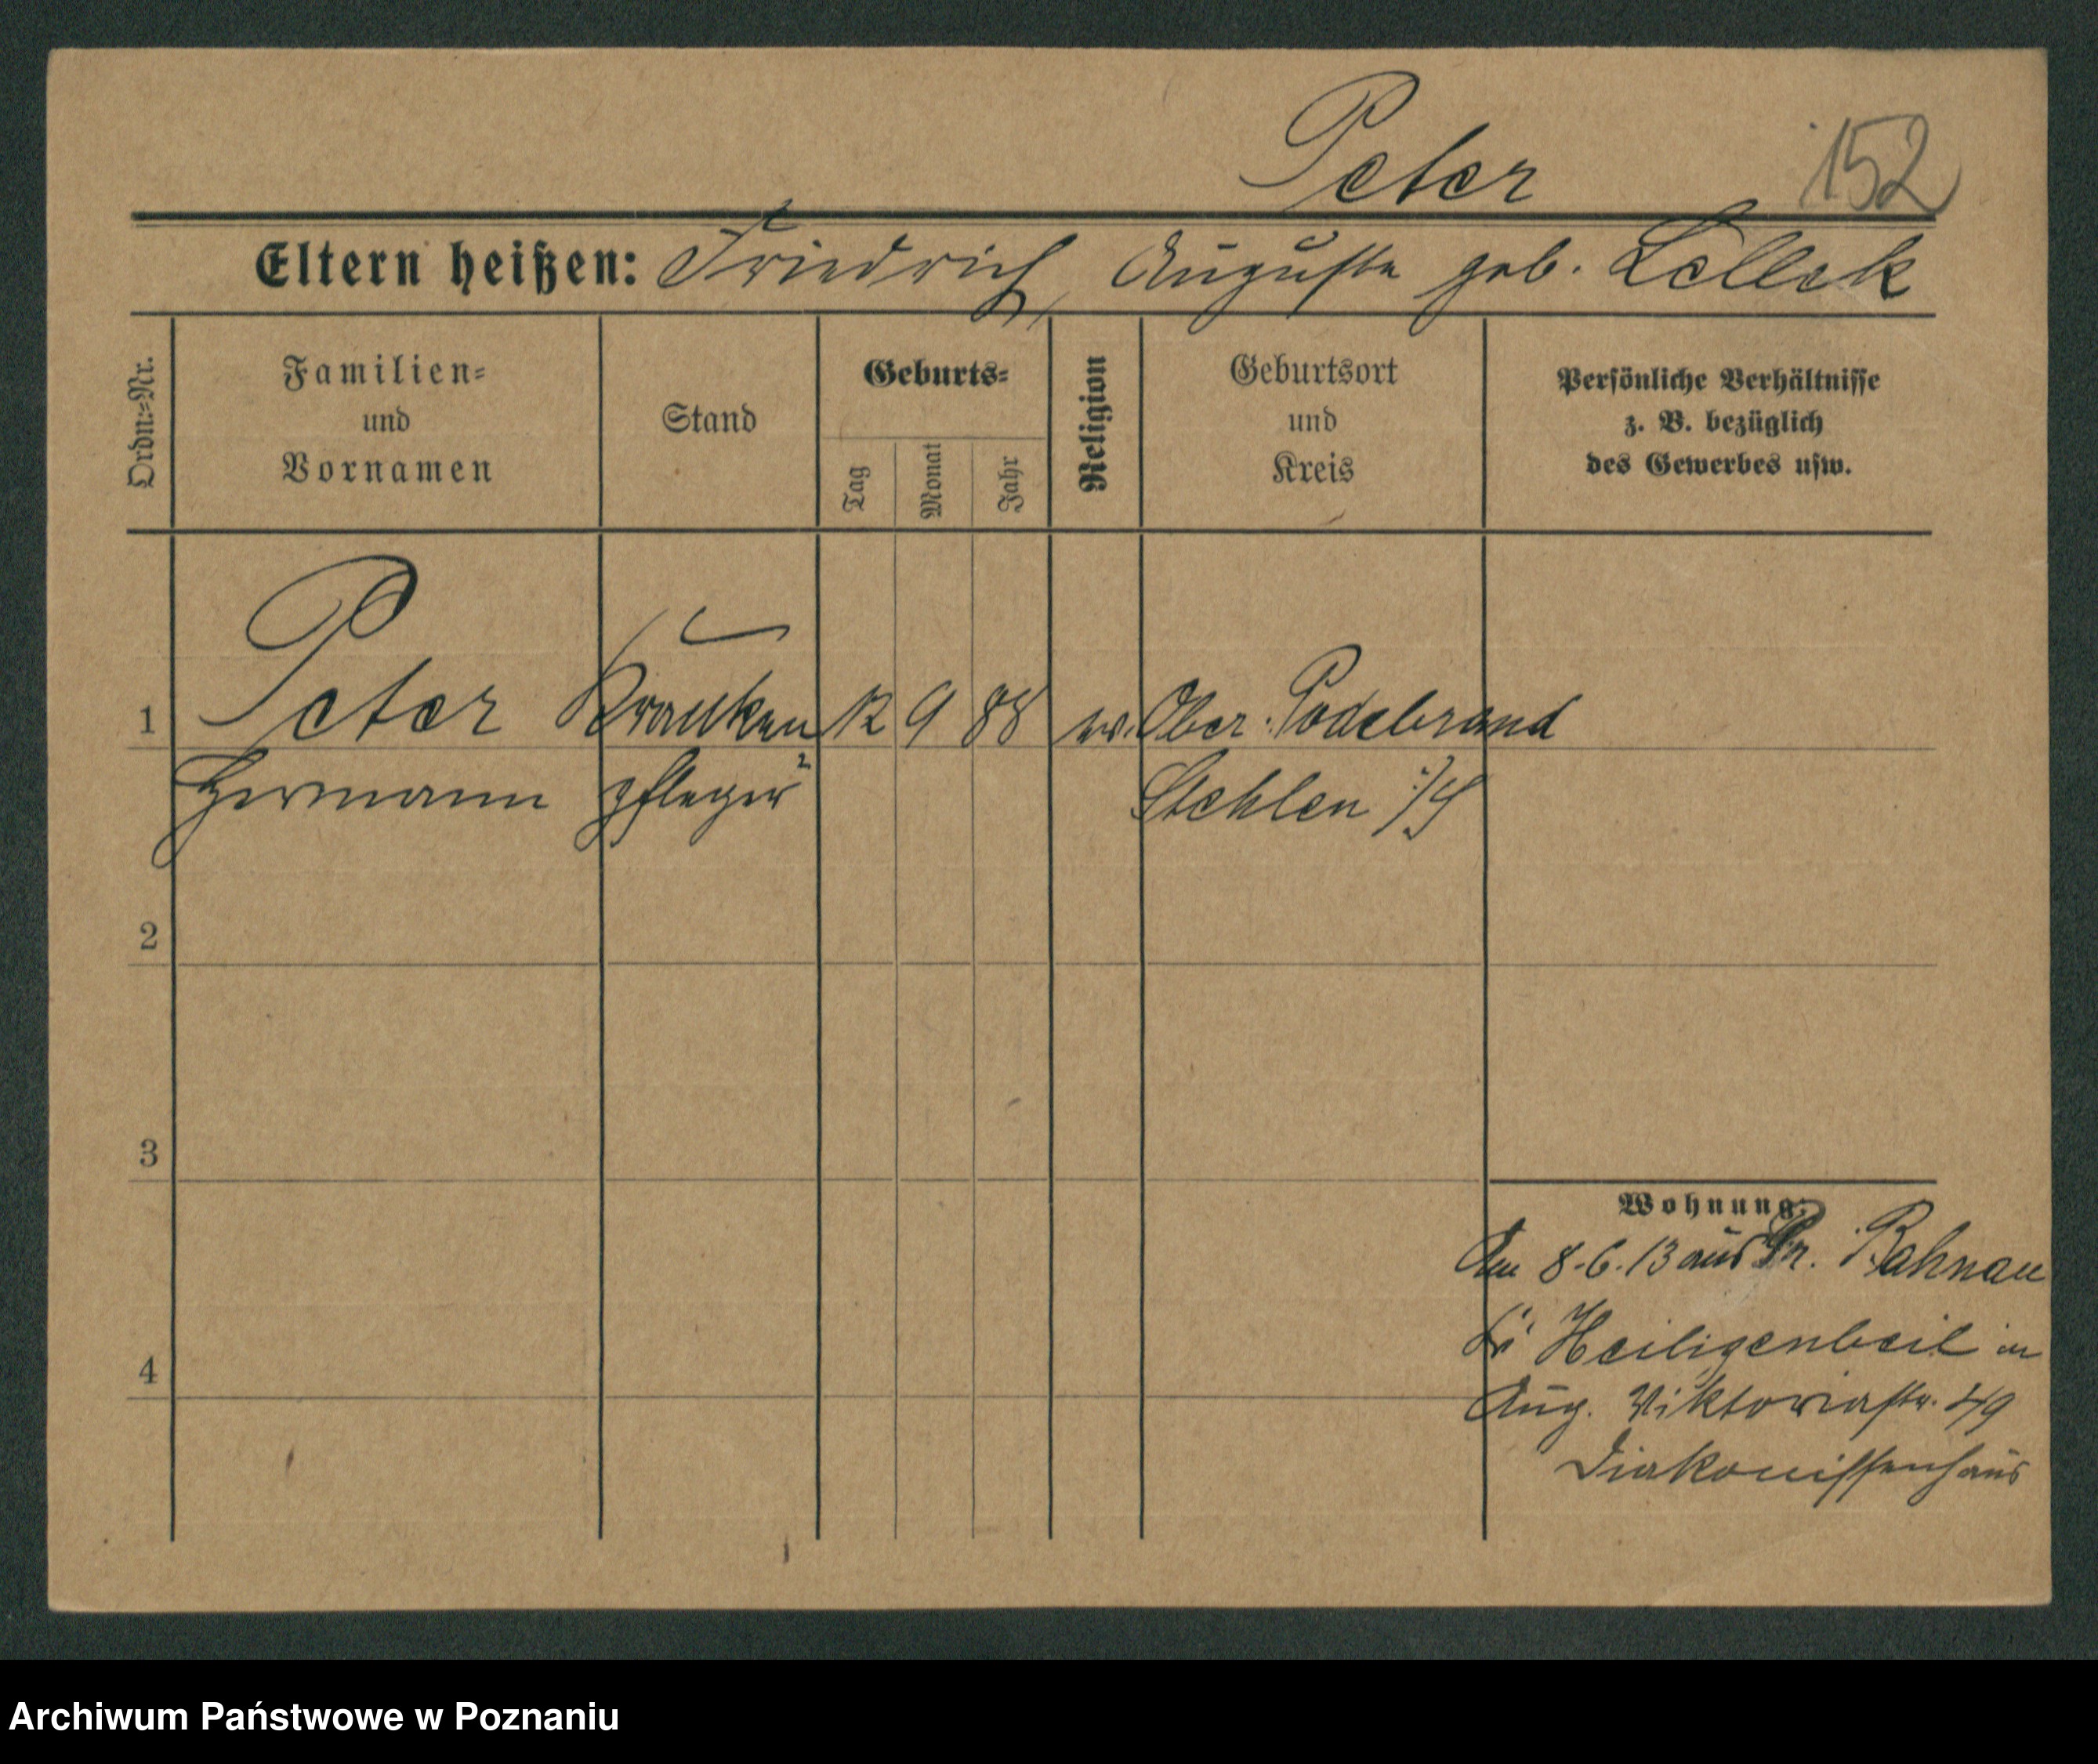 Peter 152
Eltern heißen: Friedrich, Auguste geb. Lelleck
Ordn.=Nr.
Familien=
und
Vornamen
Stand
Geburts=
Tag
Monat
Jahr
Religion
Geburtsort
und
Kreis
Persönliche Verhältnisse
z. B. bezüglich
des Gewerbes usw.
1 Peter Kranken 12 9 88 ev. Ober. Podebrand
Hermann pfleger Stehlen i/S
2
3
4
Wohnung:
Am 8.6.13 aus Pr. Bahnau
Kr Heiligenbeil in
Aug. Viktoriastr. 49
Diakonissenhaus
Archiwum Państwowe w Poznaniu